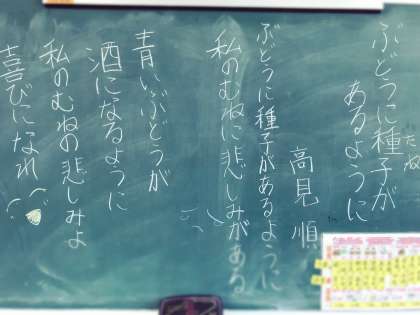 ぶどうに種子が
たね
あるように
高見順
ぶどうに種子があるように
私のむねに悲しみがある
青いぶどうが
酒になるように
私のむねの悲しみよ
喜びになれ